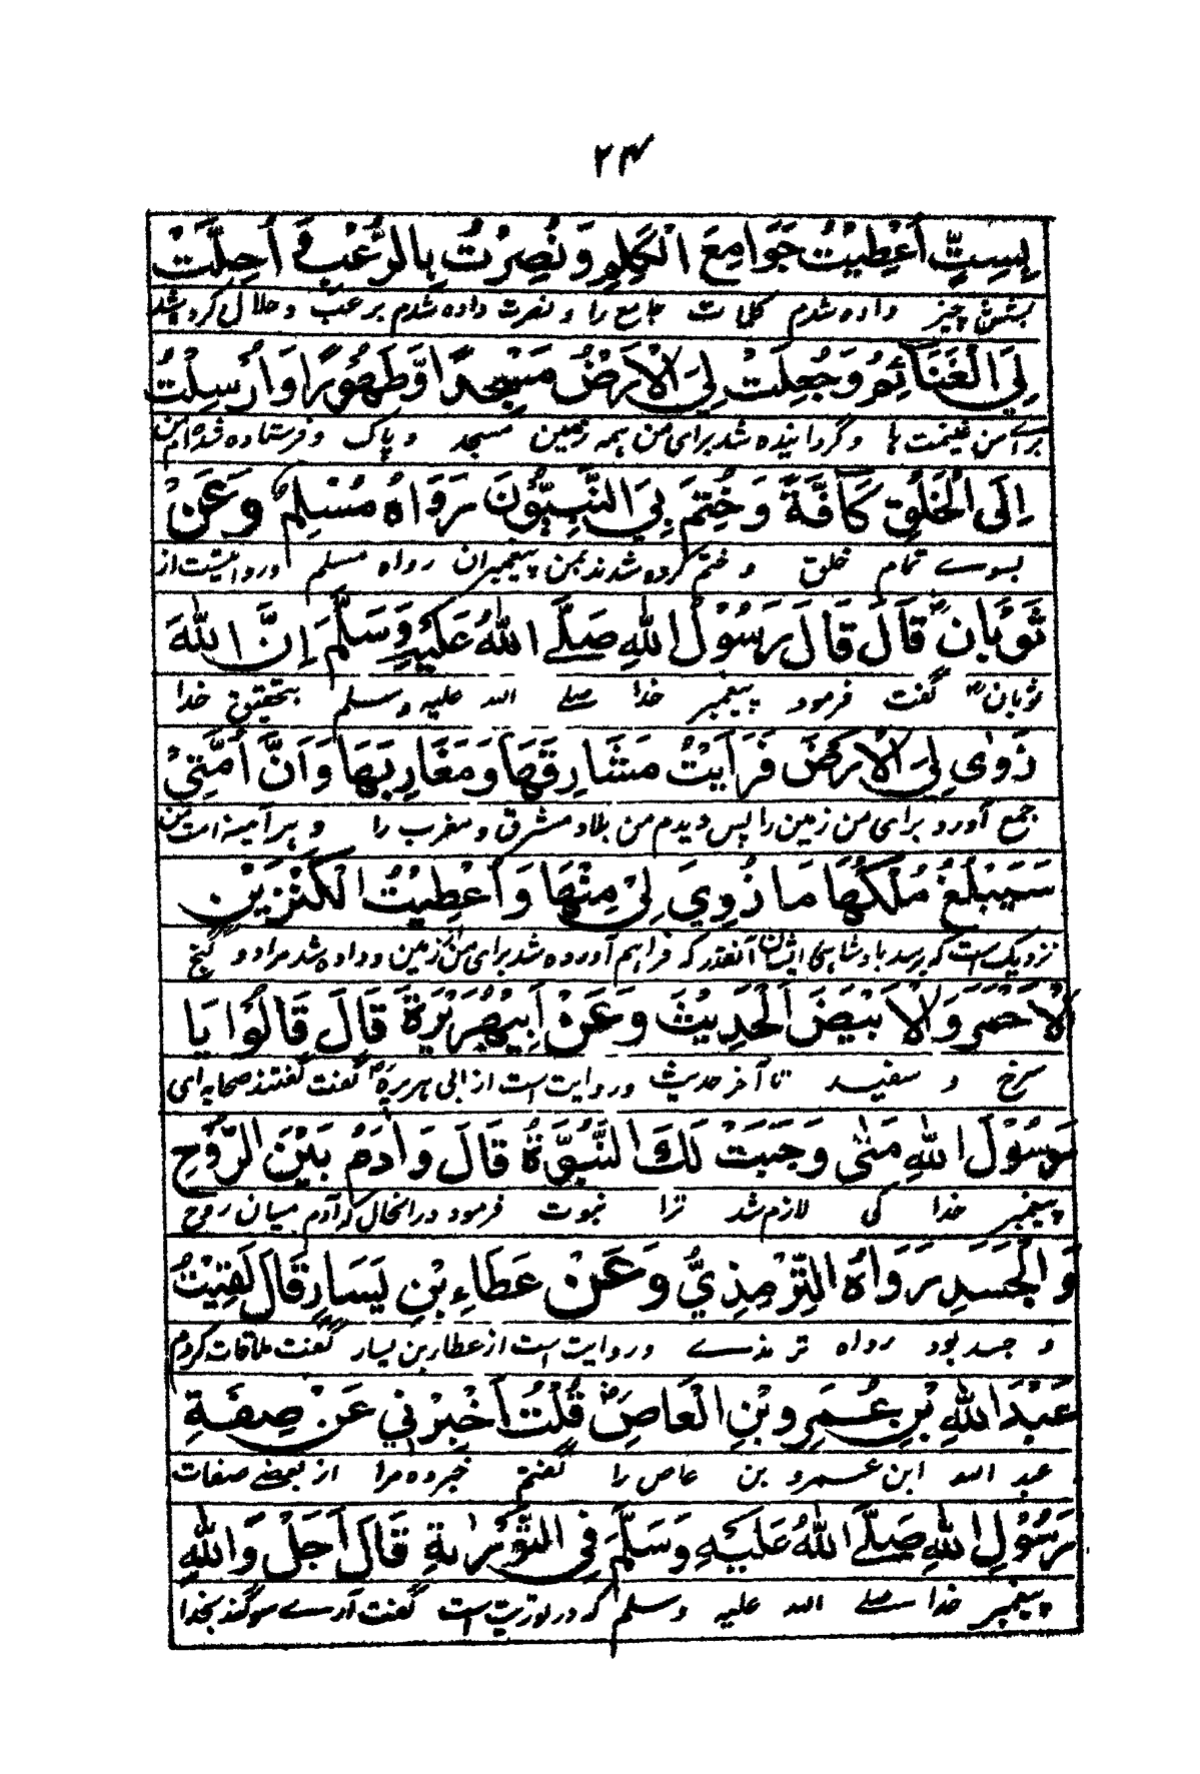 ۲۴
بِسِتٍّ اُعْطِیْتُ جَوَامِعَ الْکَلِمِ وَنُصِرْتُ بِالرُّعْبِ وَ اُحِلَّتْ
بشش چیز داده شدم کلمات جامع را و نصرت داده شدم برعب و حلال کرده شد
لِیَ الْغَنَآئِمُ وَجُعِلَتْ لِیَ الْاَرْضُ مَسْجِدًا وَّطَهُوْرًا وَاُرْسِلْتُ
براے من غنیمت ها و گردانیده شد برای من همه زمین مسجد و پاک و فرستاده شدم من
اِلَی الْخَلْقِ کَآفَّةً وَ خُتِمَ بِیَ النَّبِیُّوْنَ رَوَاهُ مُسْلِمٌ وَعَنْ
بسوے تمام خلق و ختم کرده شدند بمن پیغمبران رواه مسلم و روایتست از
ثَوْبَانَ قَالَ قَالَ رَسُوْلُ اللهِ صَلَّے اللهُ عَلَیْهِ وَسَلَّمَ اِنَّ اللهَ
ثوبان گفت فرمود پیغمبر خدا صلے الله علیه وسلم بتحقیق خدا
زَوٰی لِیَ الْاَرْضَ فَرَاَیْتُ مَشَارِقَهَا وَمَغَارِبَهَا وَاَنَّ اُمَّتِیْ
جمع آورد برای من زمین را پس دیدم من بلاد مشرق و مغرب را و هرآئینه امت من
سَیَبْلُغُ مُلْکُهَا مَا زُوِیَ لِیْ مِنْهَا وَ اُعْطِیْتُ الْکَنْزَیْنِ
نزدیک است که برسد بادشاهی ایشان آنقدر که فراهم آورده شد برای من از زمین و داده شد مرا دو گنج
الْاَحْمَرَ وَالْاَبْیَضَ الْحَدِیْثَ وَعَنْ اَبِیْ هُرَیْرَةَ قَالَ قَالُوْا یَا
سرخ و سفید تا آخر حدیث و روایت است از ابی هریره گفت گفتند صحابه ای
رَسُوْلَ اللهِ مَتٰی وَجَبَتْ لَکَ النُّبُوَّةُ قَالَ وَاٰدَمُ بَیْنَ الرُّوْحِ
پیغمبر خدا کی لازم شد ترا نبوت فرمود درانحال که آدم میان روح
وَالْجَسَدِ رَوَاهُ التِّرْمِذِیُّ وَعَنْ عَطَاءِ بْنِ یَسَارٍ قَالَ لَقِیْتُ
و جسد بود رواه ترمذے و روایت است از عطار بن یسار گفت ملاقات کردم
عَبْدَ اللهِ بْنِ عُمَرِوبْنِ الْعَاصِ قُلْتُ اَخْبِرْنِی عَنْ صِفَةِ
عبد الله ابن عمرو بن عاص را گفتم خبر ده مرا از بعضے صفات
رَسُوْلِ اللهِ صَلَّے اللهُ عَلَیْهِ وَسَلَّمَ فِی التَّوْرٰىةِ قَالَ اَجَلْ وَاللهِ
پیغمبر خدا صلے الله علیه وسلم که در توریت است گفت آرے سوگند بخدا